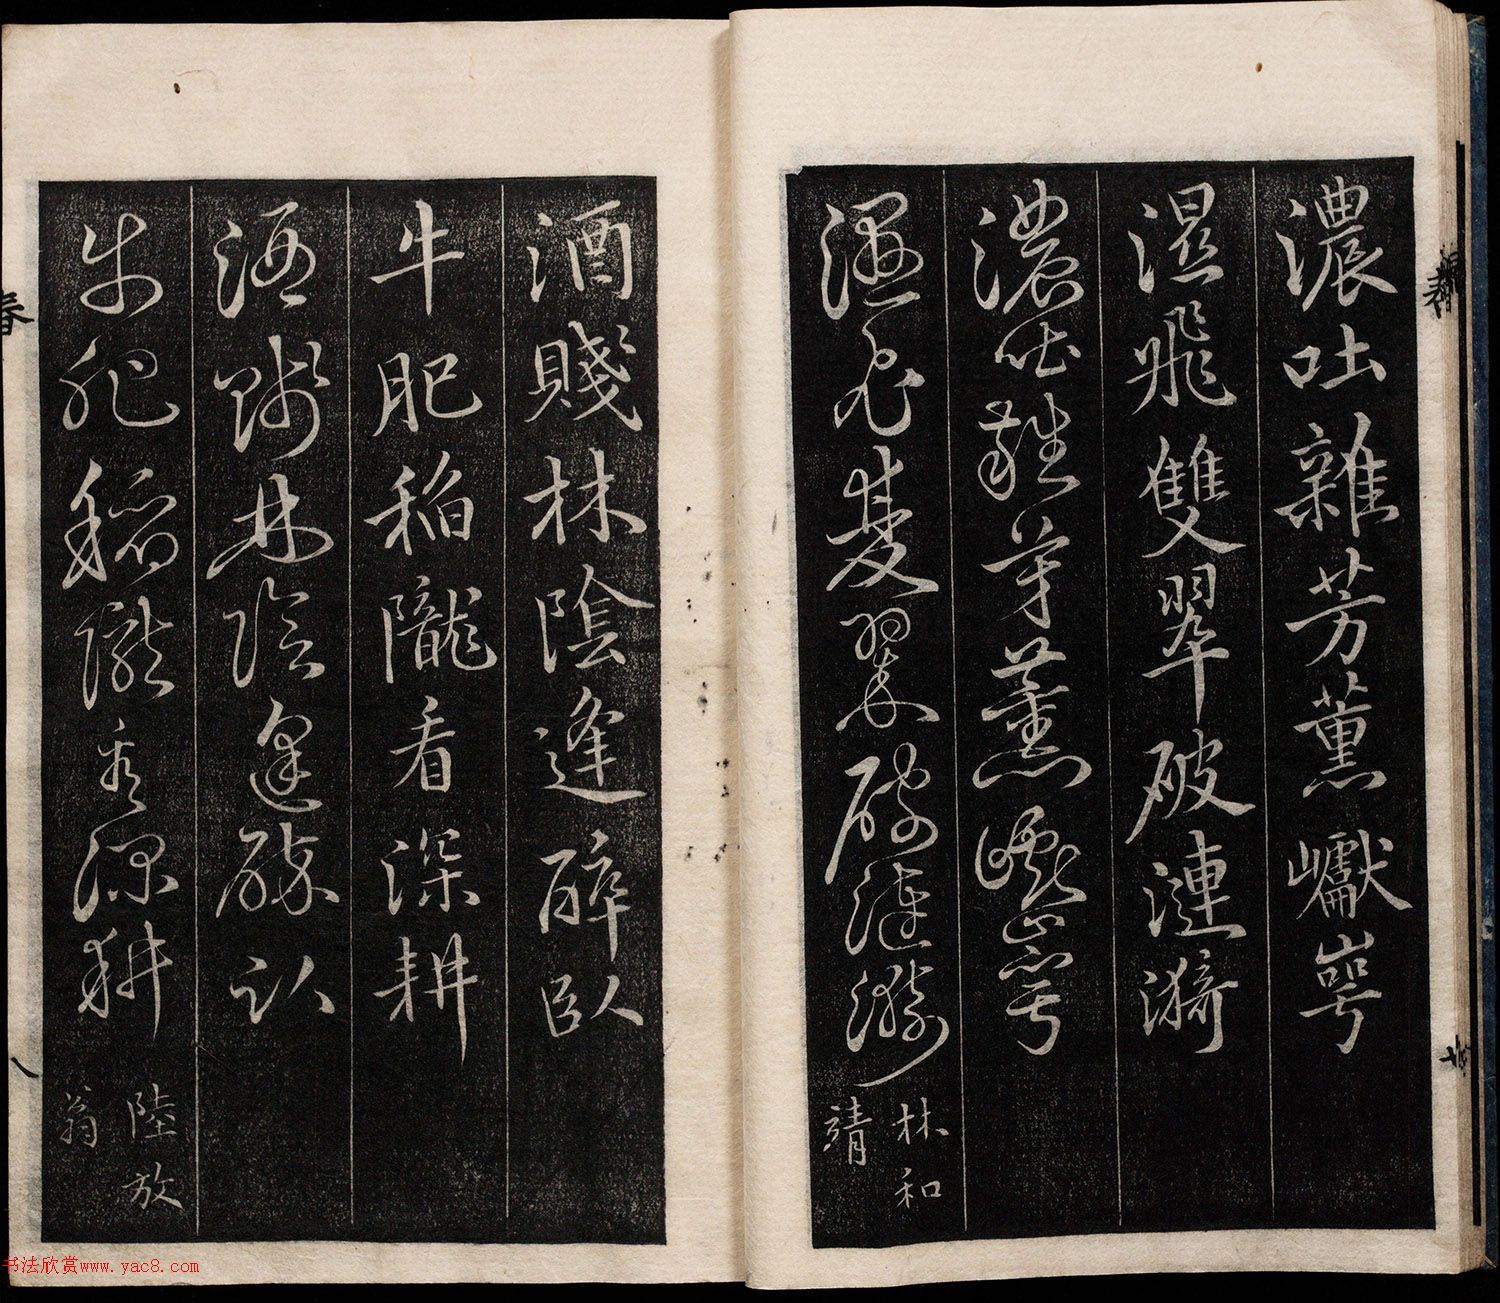 濃吐雜芳薰巘崿
濕飛雙翠破漣漪
濃吐雜芳薰巘崿
濕飛雙翠破漣漪
林和
靖
酒賤林陰逢醉臥
牛肥稻隴看深耕
酒賤林陰逢醉臥
牛肥稻隴看深耕
陸放
翁
春
书法欣赏www.yac8.com